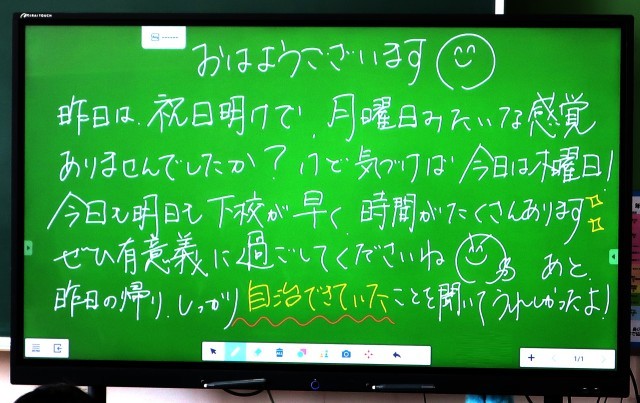 おはようございます
昨日は、祝日明けで、月曜日みたいな感覚
ありませんでしたか？けど気づけば今日は木曜日！
今日も明日も下校が早く、時間がたくさんあります
ぜひ有意義に過ごしてくださいね あと、
昨日の帰り、しっかり自治できていたことを聞いてうれしかったよ！
1/1